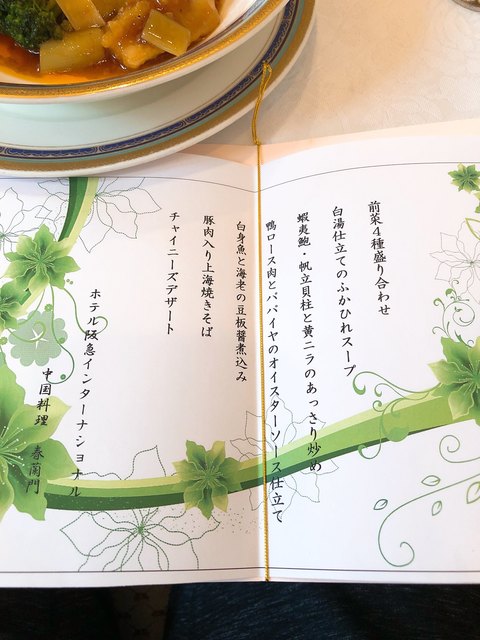 前菜4種盛り合わせ
白湯仕立てのふかひれスープ
蝦夷鮑・帆立貝柱と黄ニラのあっさり炒め
鴨ロース肉とパパイヤのオイスターソース仕立て
白身魚と海老の豆板醤煮込み
豚肉入り上海焼きそば
チャイニーズデザート
ホテル阪急インターナショナル
中国料理 春蘭門